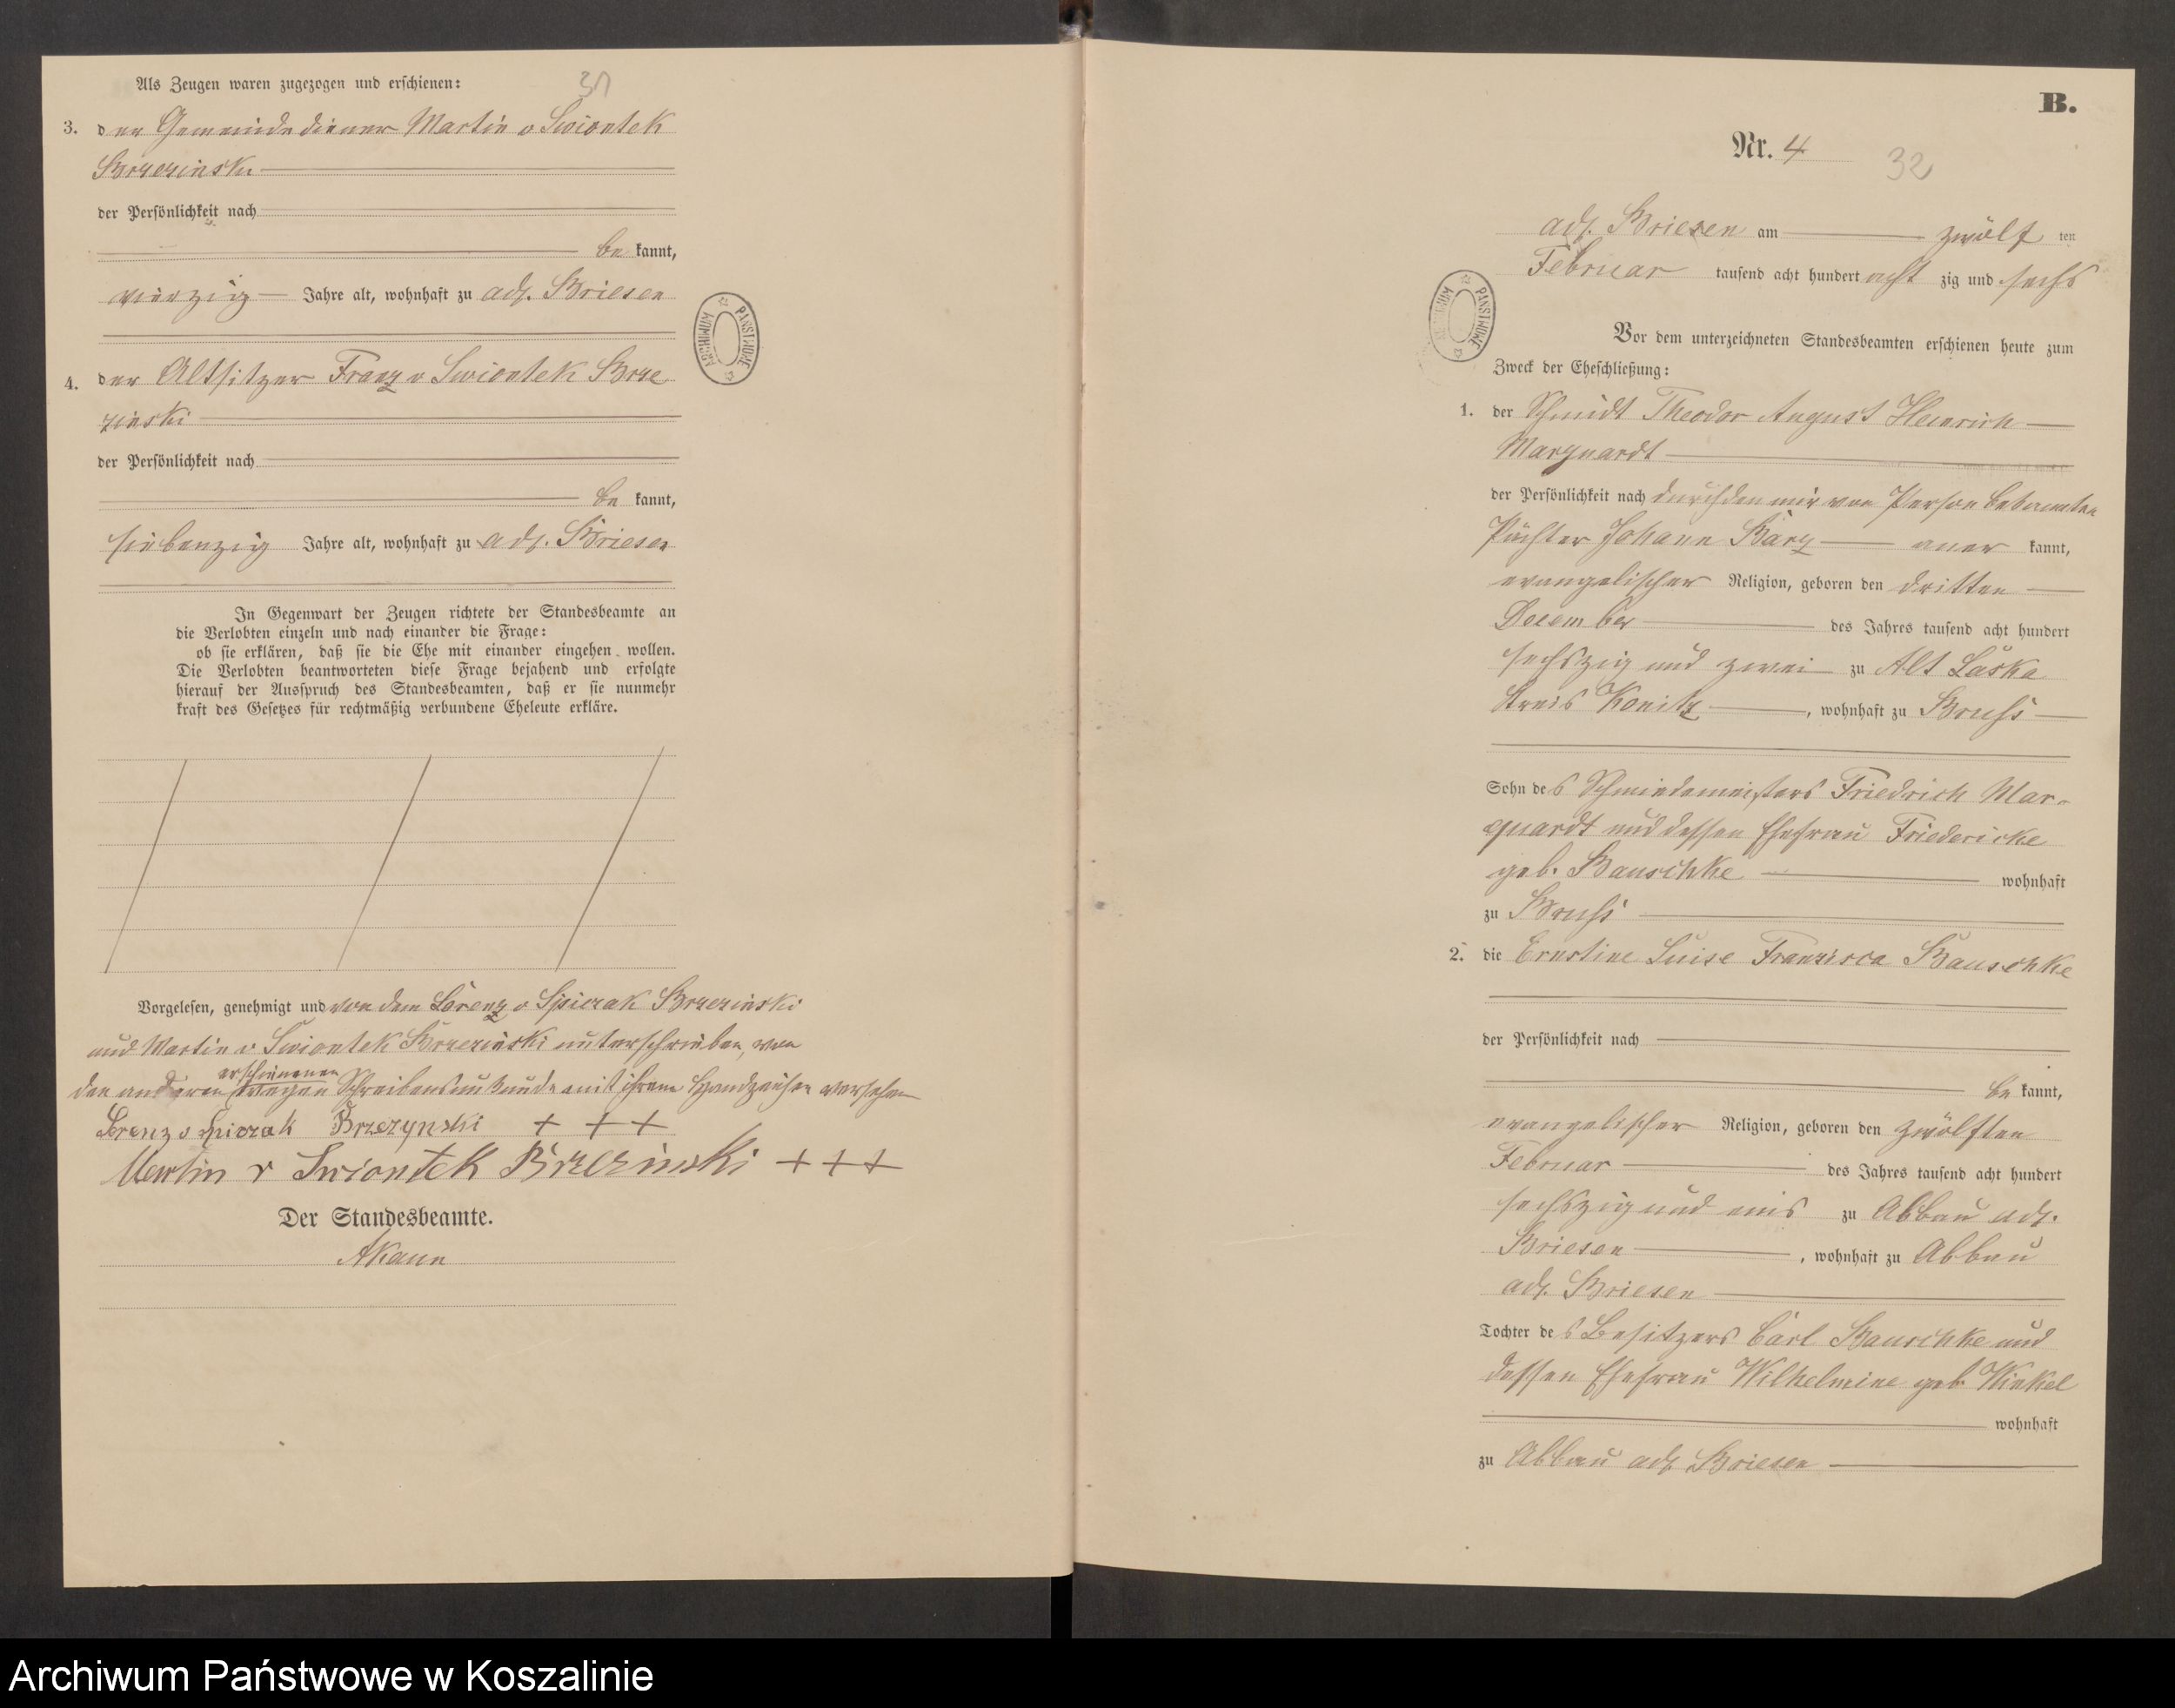 31
Als Zeugen waren zugezogen und erschienen:
3. der Gemeindediener Martin v Swiontek
Brzezinski
der Persönlichkeit nach
be kannt,
vierzig Jahre alt, wohnhaft zu adl. Briesen
4. der Altsitzer Franz v Swiontek Brze
zinski
der Persönlichkeit nach
be kannt,
siebenzig Jahre alt, wohnhaft zu adl. Briesen
In Gegenwart der Zeugen richtete der Standesbeamte an
die Verlobten einzeln und nach einander die Frage:
ob sie erklären, daß sie die Ehe mit einander eingehen wollen.
Die Verlobten beantworteten diese Frage bejahend und erfolgte
hierauf der Ausspruch des Standesbeamten, daß er sie nunmehr
kraft des Gesetzes für rechtmäßig verbundene Eheleute erkläre.
Vorgelesen, genehmigt und von dem Lorenz v Spiczak Brzezinski
und Martin v Swiontek Brzezinski unterschrieben, von
erschienenen
den anderen wegen Schreibensunkunde mit ihrem Handzeichen versehen
Lorenz v Spiczak Brzezynski + + +
Martin v Swiontek Brzezinski + + +
Der Standesbeamte.
AKaun
ARCHIWUM PAŃSTWOWE
B.
Nr. 4
32
adl. Briesen am zwölf ten
Februar tausend acht hundert acht zig und sechs
ARCHIWUM PAŃSTWOWE
Vor dem unterzeichneten Standesbeamten erschienen heute zum
Zweck der Eheschließung:
1. der Schmidt Theodor August Heinrich
Marquardt
der Persönlichkeit nach durch den mir von Person bekannten
Pächter Johann Barz aner kannt,
evangelischer Religion, geboren den dritten
December des Jahres tausend acht hundert
sechszig und zwei zu Alt Laska
Kreis Konitz, wohnhaft zu Bruß
Sohn des Schmiedemeisters Friedrich Mar-
quardt und dessen Ehefrau Friedericke
geb. Bauschke wohnhaft
zu Bruß
2. die Ernstine Luise Franzisca Bauschke
der Persönlichkeit nach
be kannt,
evangelischer Religion, geboren den zwölften
Februar des Jahres tausend acht hundert
sechszig und eins zu Abbau adl.
Briesen, wohnhaft zu Abbau
adl. Briesen
Tochter des Besitzers Carl Bauschke und
dessen Ehefrau Wilhelmine geb. Winkel
wohnhaft
zu Abbau adl. Briesen
Archiwum Państwowe w Koszalinie